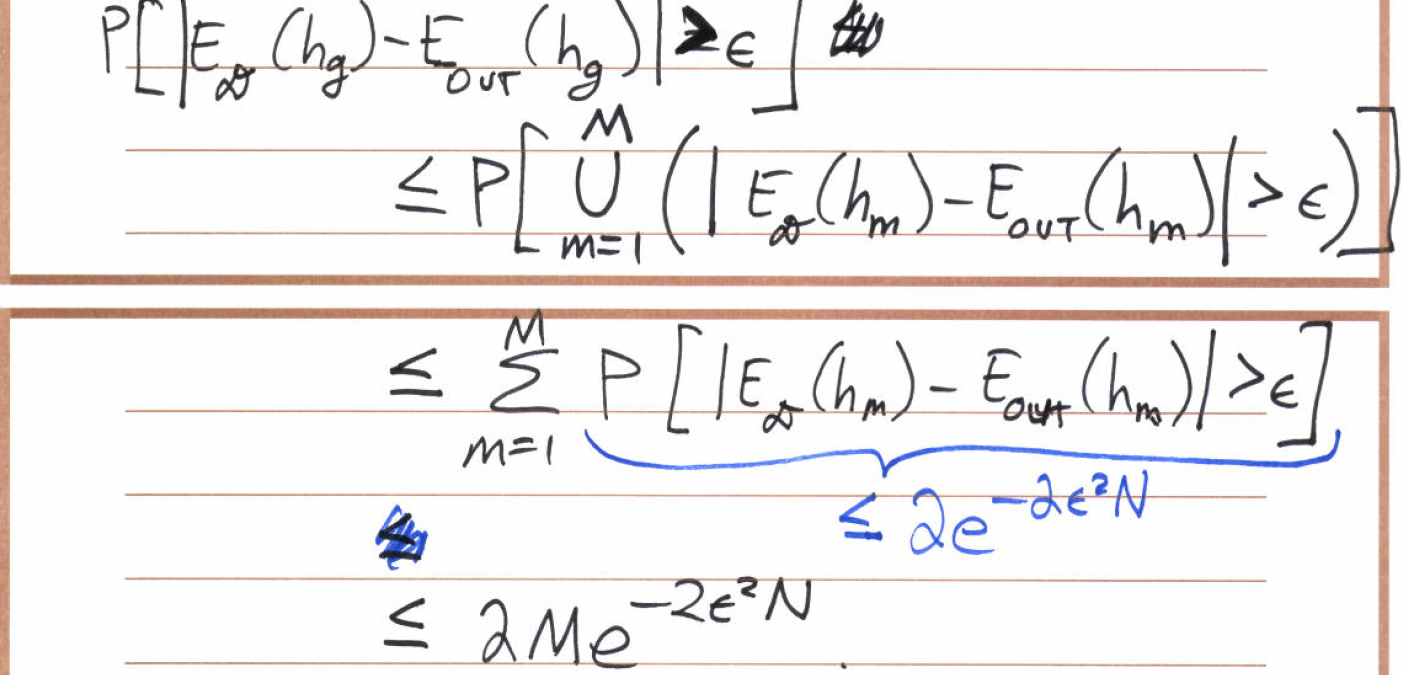 P[|E_𝒟(h_g) - E_OUT(h_g)| > ϵ]
≤ P[ ⋃_{m=1}^{M} (|E_𝒟(h_m) - E_OUT(h_m)| > ϵ)]
≤ ∑_{m=1}^{M} P[|E_𝒟(h_m) - E_OUT(h_m)| > ϵ]
≤ 2e^{-2ϵ²N}
≤
≤ 2Me^{-2ϵ²N}